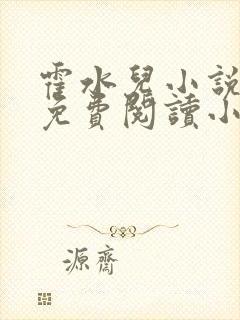 霍水兒小說
免費閱讀小
源齋